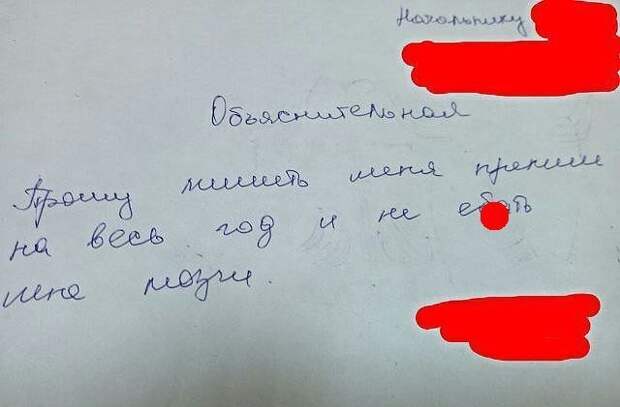 Начальнику
Объяснительная
Прошу лишить меня премии
на весь год и не ебать
мне мозги.